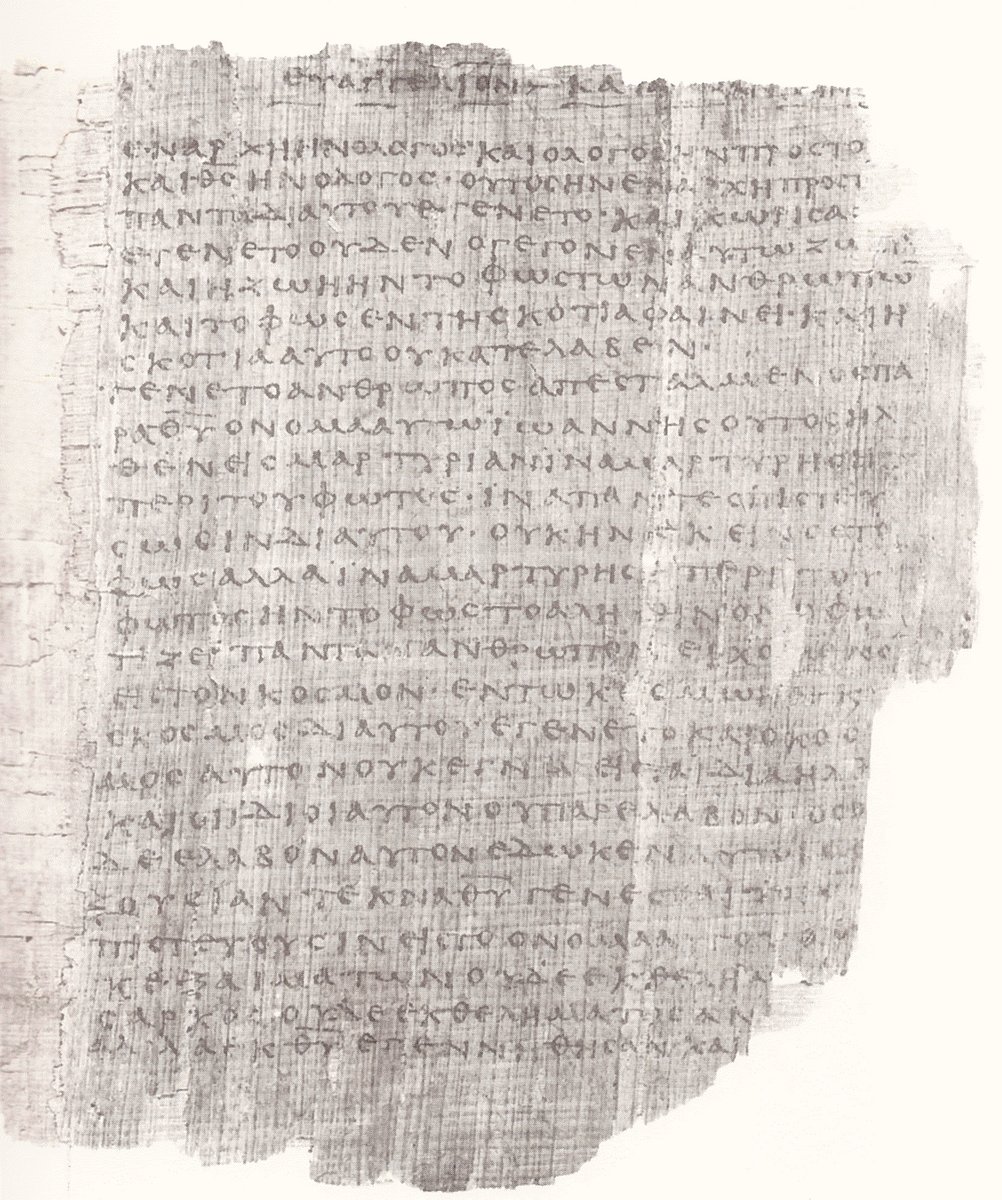 ΕΥΑΓΓΕΛΙΟΝ ΚΑΤΑ
ΕΝΑΡΧΗΗΝΟΛΟΓΟϹΚΑΙΟΛΟΓΟϹΗΝΠΡΟϹΤΟ
ΚΑΙΘ̅Ϲ̅ΗΝΟΛΟΓΟϹ·ΟΥΤΟϹΗΝΕΝΑΡΧΗΠΡΟϹΤ
ΠΑΝΤΑΔΙΑΥΤΟΥΕΓΕΝΕΤΟ·ΚΑΙΧΩΡΙϹΑ
ΕΓΕΝΕΤΟΟΥΔΕΝΟΓΕΓΟΝΕΝΕΝΑΥΤΩΖΩ
ΚΑΙΗΖΩΗΗΝΤΟΦΩϹΤΩΝΑΝΘΡΩΠΩ
ΚΑΙΤΟΦΩϹΕΝΤΗϹΚΟΤΙΑΦΑΙΝΕΙ·ΚΑΙΗ
ϹΚΟΤΙΑΑΥΤΟΟΥΚΑΤΕΛΑΒΕΝ·
ΓΕΝΕΤΟΑΝΘΡΩΠΟϹΑΠΕϹΤΑΛΜΕΝΟϹΠΑ
ΡΑΘ̅Υ̅ΟΝΟΜΑΑΥΤΩΪΩΑΝΝΗϹΟΥΤΟϹΗΛ
ΘΕΝΕΙϹΜΑΡΤΥΡΙΑΝΙΝΑΜΑΡΤΥΡΗϹΗ
ΠΕΡΙΤΟΥΦΩΤΟϹ·ΙΝΑΠΑΝΤΕϹΠΙϹΤΕΥ
ϹΩϹΙΝΔΙΑΥΤΟΥ·ΟΥΚΗΝΕΚΕΙΝΟϹΤΟ
ΦΩϹΑΛΛΑΙΝΑΜΑΡΤΥΡΗϹΗΠΕΡΙΤΟΥ
ΦΩΤΟϹΗΝΤΟΦΩϹΤΟΑΛΗΘΙΝΟΝΟΦΩ
ΤΙΖΕΙΠΑΝΤΑΑΝΘΡΩΠΟΝΕΡΧΟΜΕΝΟΝ
ΕΙϹΤΟΝΚΟϹΜΟΝ·ΕΝΤΩΚΟϹΜΩΗΝΚ
ΟΚΟϹΜΟϹΔΙΑΥΤΟΥΕΓΕΝΕΤΟΚΑΙΟΚΟϹ
ΜΟϹΑΥΤΟΝΟΥΚΕΓΝΩΕΙϹΤΑΙΔΙΑΗΛ
ΚΑΙΟΙΙΔΙΟΙΑΥΤΟΝΟΥΠΑΡΕΛΑΒΟΝ·ΟϹΟ
ΔΕΕΛΑΒΟΝΑΥΤΟΝΕΔΩΚΕΝΑΥΤΟΙ
ΞΟΥϹΙΑΝΤΕΚΝΑΘ̅Υ̅ΓΕΝΕϹΘΑΙΤΟΙ
ΠΙϹΤΕΥΟΥϹΙΝΕΙϹΤΟΟΝΟΜΑΑΥΤΟΥ
ΚΕΞΑΙΜΑΤΩΝΟΥΔΕΕΚΘΕΛΗΜΑ
ϹΑΡΚΟϹΟΥΔΕΕΚΘΕΛΗΜΑΤΟϹΑΝ
ΑΛΛΑΕΚΘ̅Υ̅ΕΓΕΝΝΗΘΗϹΑΝΚΑΙ